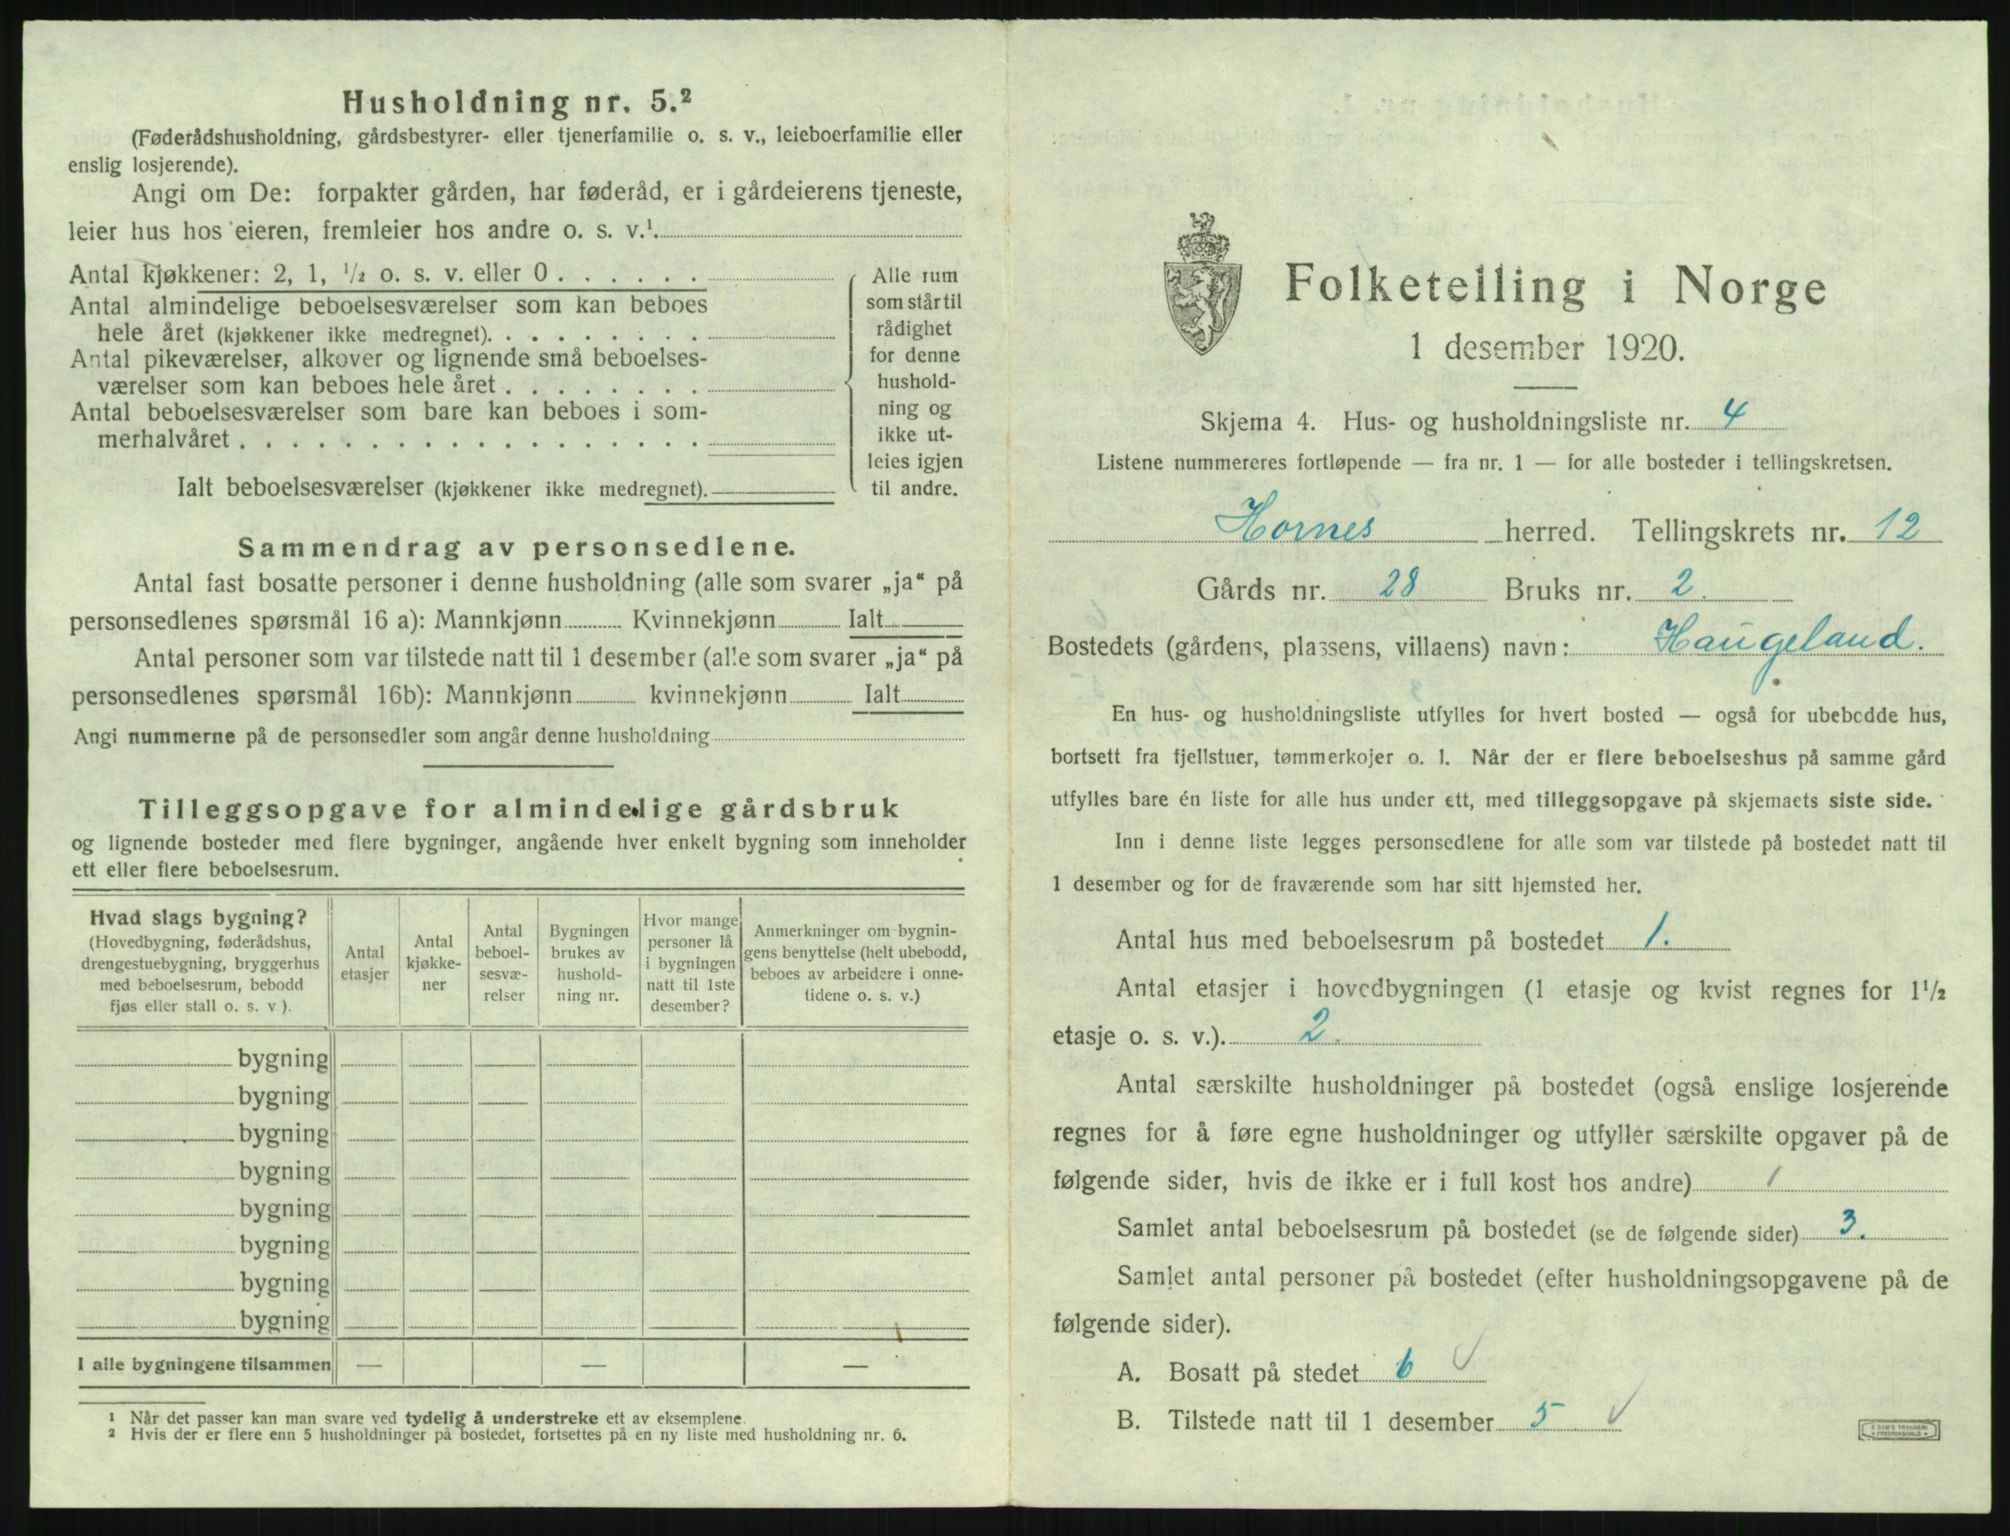 Husholdning nr. 5.²
(Føderådshusholdning, gårdsbestyrer- eller tjenerfamilie o. s. v., leieboerfamilie eller
enslig losjerende).
Angi om De: forpakter gården, har føderåd, er i gårdeierens tjeneste,
leier hus hos eieren, fremleier hos andre o. s. v.¹.
Antal kjøkkener: 2, 1, ½ o. s. v. eller 0 . . . . . .
Antal almindelige beboelsesværelser som kan beboes
hele året (kjøkkener ikke medregnet). . . . . . . . .
Antal pikeværelser, alkover og lignende små beboelses-
værelser som kan beboes hele året . . . . . . . .
Antal beboelsesværelser som bare kan beboes i som-
merhalvåret . . . . . . . . . . . . . . . . . .
Ialt beboelsesværelser (kjøkkener ikke medregnet).
Alle rum
som står til
rådighet
for denne
hushold-
ning og
ikke ut-
leies igjen
til andre.
Sammendrag av personsedlene.
Antal fast bosatte personer i denne husholdning (alle som svarer „ja“ på
personsedlenes spørsmål 16 a): Mannkjønn Kvinnekjønn Ialt
Antal personer som var tilstede natt til 1 desember (alle som svarer „ja“ på
personsedlenes spørsmål 16b): Mannkjønn kvinnekjønn Ialt
Angi nummerne på de personsedler som angår denne husholdning
Tilleggsopgave for almindelige gårdsbruk
og lignende bosteder med flere bygninger, angående hver enkelt bygning som inneholder
ett eller flere beboelsesrum.
Hvad slags bygning?
(Hovedbygning, føderådshus,
drengestuebygning, bryggerhus
med beboelsesrum, bebodd
fjøs eller stall o. s. v ).
Antal
etasjer
Antal
kjøkke-
ner
Antal
beboel-
sesvæ-
relser
Bygningen
brukes av
hushold-
ning nr.
Hvor mange
personer lå
i bygningen
natt til 1ste
desember?
Anmerkninger om bygnin-
gens benyttelse (helt ubebodd,
beboes av arbeidere i onne-
tidene o. s. v.)
bygning
bygning
bygning
bygning
bygning
bygning
bygning
bygning
I alle bygningene tilsammen — — —
¹ Når det passer kan man svare ved tydelig å understreke ett av eksemplene.
² Hvis der er flere enn 5 husholdninger på bostedet, fortsettes på en ny liste med husholdning nr. 6.
Folketelling i Norge
1 desember 1920.
Skjema 4. Hus- og husholdningsliste nr. 4
Listene nummereres fortløpende — fra nr. 1 — for alle bosteder i tellingskretsen.
Hornes herred. Tellingskrets nr. 12
Gårds nr. 28 Bruks nr. 2.
Bostedets (gårdens, plassens, villaens) navn: Haugeland.
En hus- og husholdningsliste utfylles for hvert bosted — også for ubebodde hus,
bortsett fra fjellstuer, tømmerkojer o. l. Når der er flere beboelseshus på samme gård
utfylles bare én liste for alle hus under ett, med tilleggsopgave på skjemaets siste side.
Inn i denne liste legges personsedlene for alle som var tilstede på bostedet natt til
1 desember og for de fraværende som har sitt hjemsted her.
Antal hus med beboelsesrum på bostedet 1.
Antal etasjer i hovedbygningen (1 etasje og kvist regnes for 1½
etasje o. s. v.). 2.
Antal særskilte husholdninger på bostedet (også enslige losjerende
regnes for å føre egne husholdninger og utfyller særskilte opgaver på de
følgende sider, hvis de ikke er i full kost hos andre) 1
Samlet antal beboelsesrum på bostedet (se de følgende sider) 3.
Samlet antal personer på bostedet (efter husholdningsopgavene på de
følgende sider).
A. Bosatt på stedet 6 ✓
B. Tilstede natt til 1 desember 5 ✓